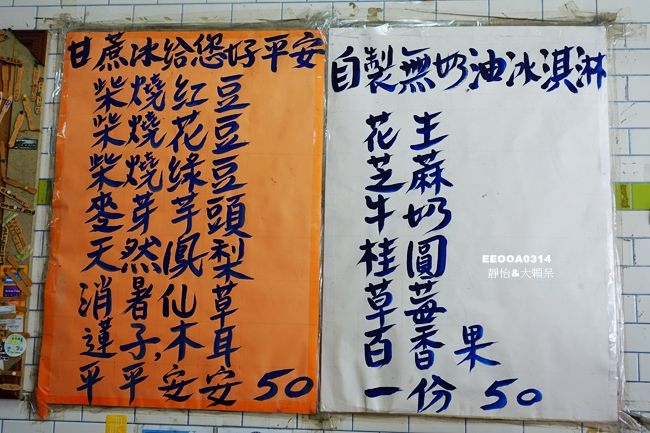 甘蔗冰給您好平安
柴燒紅豆
柴燒花豆
柴燒綠豆
麥芽芋頭
天然鳳梨
消暑仙草
蓮子,木耳
平平安安 50
自製無奶油冰淇淋
花生
芝蔴
牛奶
桂圓
草莓
百香果
一份 50
EEOOA0314
靜怡&大顆呆